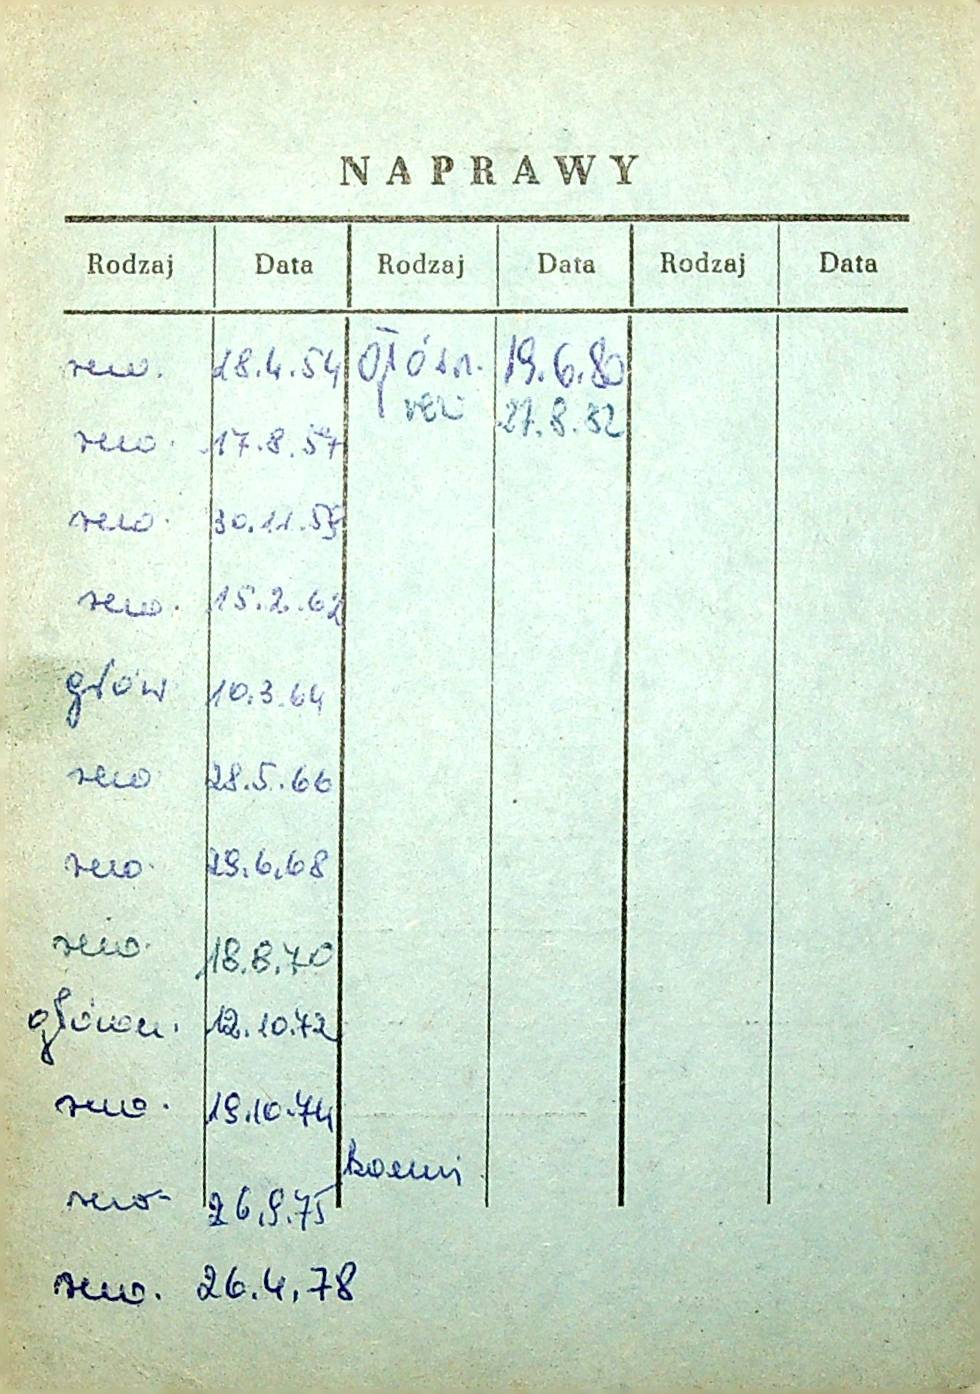 NAPRAWY
Rodzaj Data Rodzaj Data Rodzaj Data
rew. 28.4.54 główn. 19.6.80
rew 27.8.82
rew. 17.8.57
rew. 30.11.59
rew. 15.2.62
głów 10.3.64
rew 28.5.66
rew. 29.6.68
rew. 18.8.70
główn. 12.10.72
rew. 19.10.74
rew. 26.9.75
rew. 26.4.78